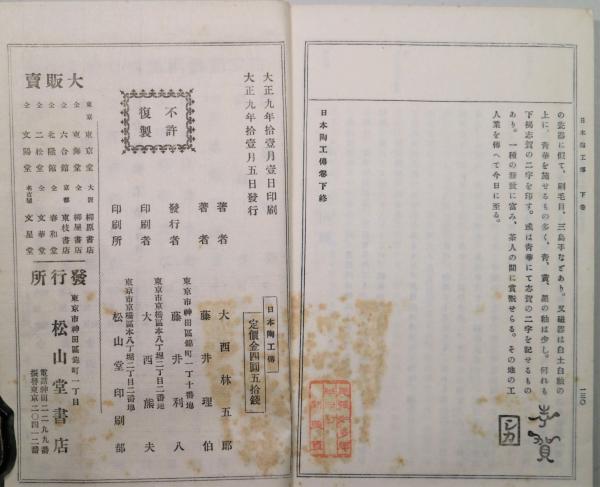 日本陶工傳 下卷
一三〇
の瓷器に似て、刷毛目、三島手などあり。又磁器は白土白釉の
上に、靑華を施せるもの多く、靑、黃、黑の釉は少し。何れも
下楊志賀の二字を印す。或は靑華にて志賀の二字を記せるもの
あり。一種の雅致に富み、茶人の間に賞翫せらる。その地の工
人業を傳へて今日に至る。
志賀
シカ
日本陶工傳卷下終
大正九年拾壹月壹日印刷
大正九年拾壹月五日發行
日本陶工傳
定價金四圓五拾錢
不許
復製
著者 大西林五郎
著者 藤井理伯
東京市神田區錦町一丁十番地
發行者 藤井利八
東京市京橋區本八丁堀二丁目二番地
印刷者 大西熊夫
東京市京橋區本八丁堀二丁目二番地
印刷所 松山堂印刷部
大販賣
東京 東京堂 大阪 柳原書店
仝 東海堂 仝 柳屋書店
仝 六合館 京都 東枝書店
仝 北隆館 仝 春和堂
仝 二松堂 仝 文華堂
仝 文陽堂 名古屋 文星堂
發行所
東京市神田區錦町一丁目
松山堂書店
電話神田二二九九番
振替東京二〇四一二番